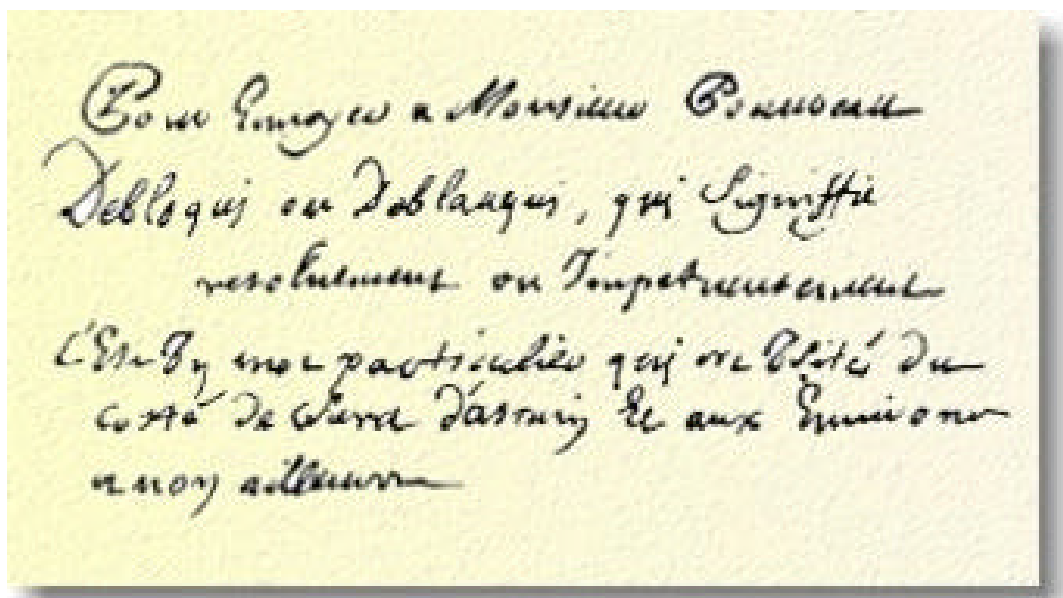 Pour Envoyer a Monsieur Bonneau
Debloquis ou Deblauquis, quj Signiffie
resoluement ou Impetueusement
C'Est Vn mot particulier quj Est Usité du
costé de d'astun Et aux Enuirons
a non ailleurs